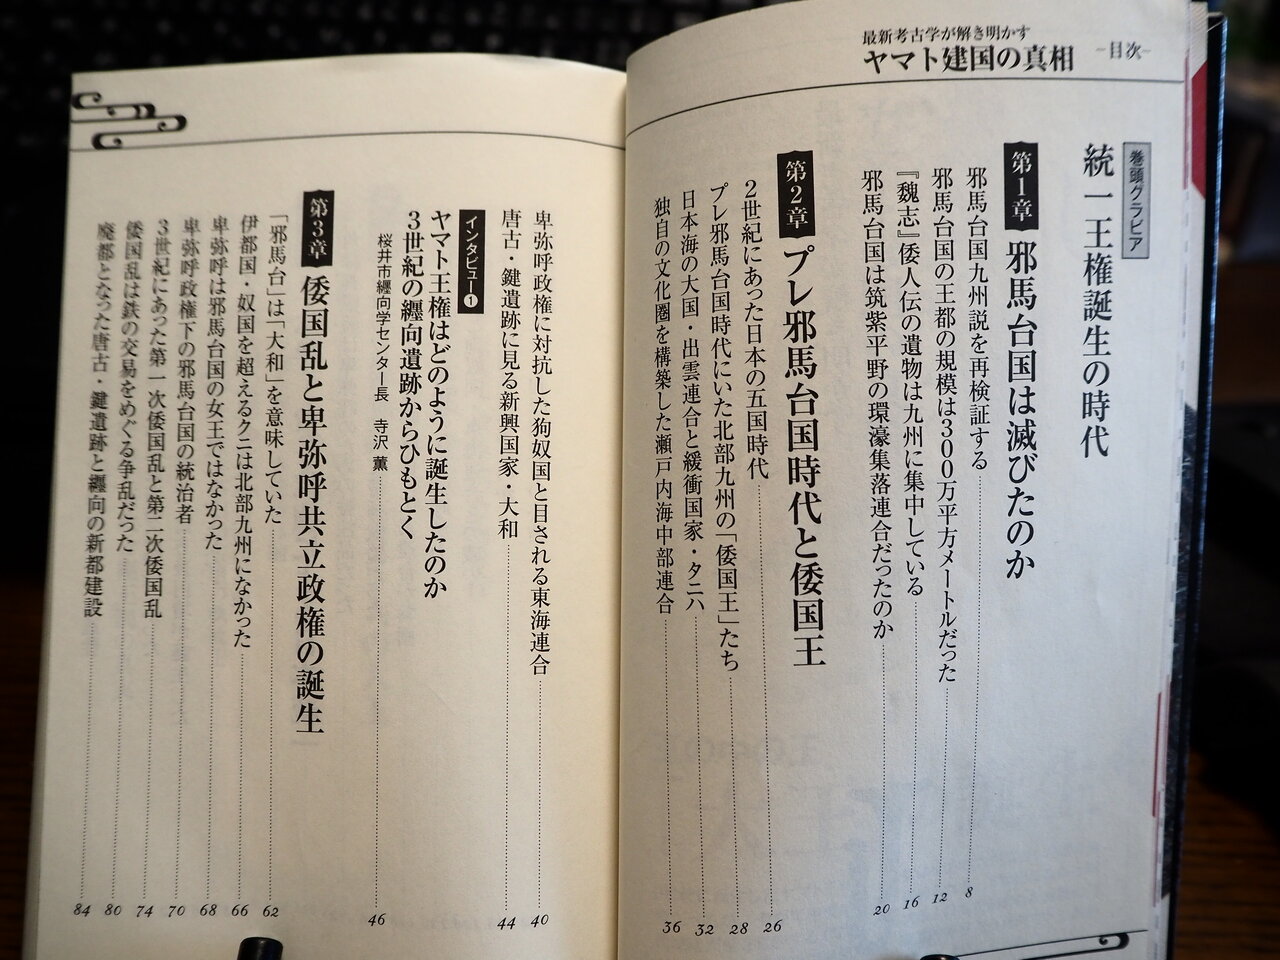 最新考古学が解き明かす
ヤマト建国の真相
−目次−
巻頭グラビア
統一王権誕生の時代
第1章 邪馬台国は滅びたのか
邪馬台国九州説を再検証する 8
邪馬台国の王都の規模は300万平方メートルだった 12
『魏志』倭人伝の遺物は九州に集中している 16
邪馬台国は筑紫平野の環濠集落連合だったのか 20
第2章 プレ邪馬台国時代と倭国王
2世紀にあった日本の五国時代 26
プレ邪馬台国時代にいた北部九州の「倭国王」たち 28
日本海の大国・出雲連合と緩衝国家・タニハ 32
独自の文化圏を構築した瀬戸内海中部連合 36
卑弥呼政権に対抗した狗奴国と目される東海連合 40
唐古・鍵遺跡に見る新興国家・大和 44
インタビュー1
ヤマト王権はどのように誕生したのか
3世紀の纒向遺跡からひもとく
桜井市纒向学センター長 寺沢 薫 46
第3章 倭国乱と卑弥呼共立政権の誕生
「邪馬台」は「大和」を意味していた 62
伊都国・奴国を超えるクニは北部九州になかった 66
卑弥呼は邪馬台国の女王ではなかった 68
卑弥呼政権下の邪馬台国の統治者 70
3世紀にあった第一次倭国乱と第二次倭国乱 74
倭国乱は鉄の交易をめぐる争乱だった 80
廃都となった唐古・鍵遺跡と纒向の新都建設 84